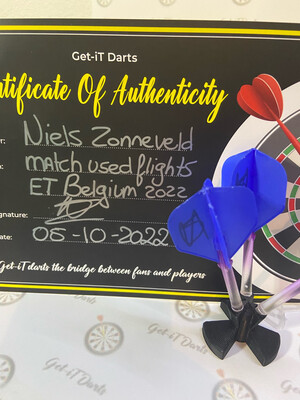 Get-iT Darts
ntificate Of Authenticity
er: Niels Zonneveld
match used flights
ET Belgium 2022
ignature:
ate: 06-10-2022
Get-iT darts the bridge between fans and players
Get-iT Darts
Get-iT Darts
Get-iT Darts